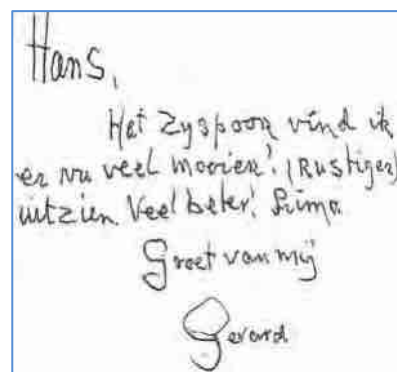 Hans,
Het Zyspoor vind ik
er nu veel mooier! (Rustiger)
uitzien. Veel beter! Prima.
Groet van mij
Gerard